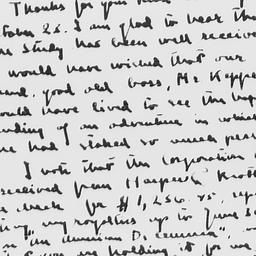 Thanks for your
26. I am glad to hear tha
study has been well receive
would have wished that our
and, good old boss, Mr. Keppe
ould have lived to see the hap
nding of an adventure in which
he had staked so much
I note that the corporation
received from Harper &
check for $1,256.
my royalties up to June
"An American Dilemma",
holding it for me